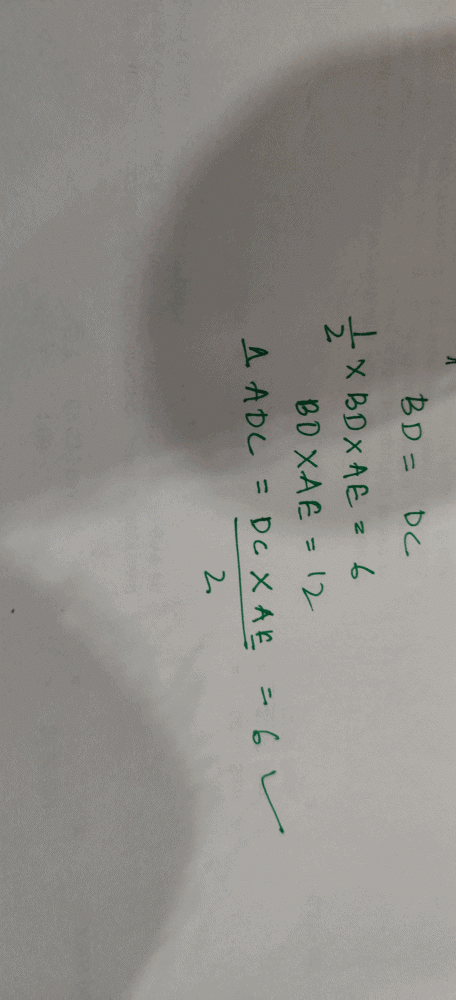 BD = DC
1/2 × BD × AE = 6
BD × AE = 12
Δ ADC = DC × AE / 2 = 6 ✓